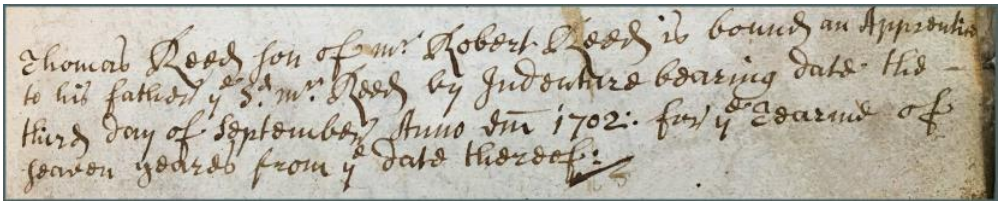 Thomas Reed son of mr. Robert Reed is bound an Apprentice
to his father ye Sd. mr. Reed by Indenture bearing date the -
third day of September Anno Dm 1702: for ye Tearme of
seaven yeares from ye date thereof: